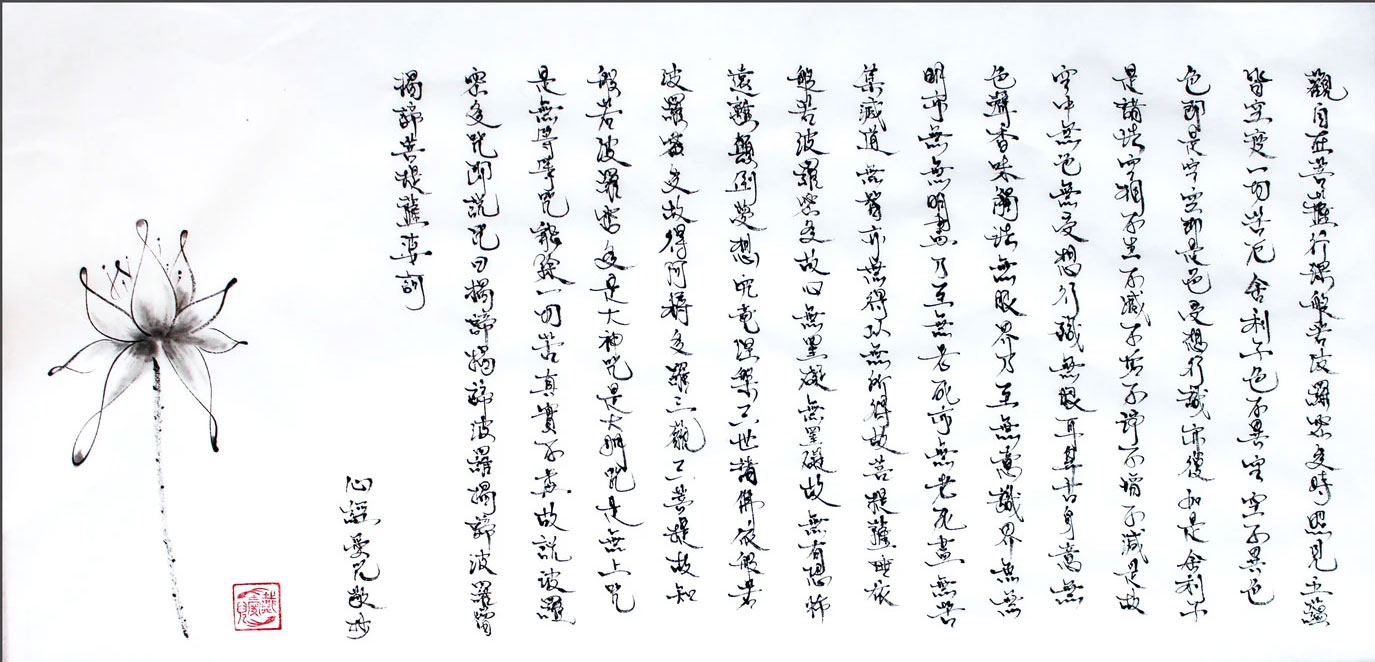 觀自在菩薩行深般若波羅蜜多時照見五蘊
皆空度一切苦厄舍利子色不異空空不異色
色即是空空即是色受想行識亦復如是舍利子
是諸法空相不生不滅不垢不淨不增不減是故
空中無色無受想行識無眼耳鼻舌身意無
色聲香味觸法無眼界乃至無意識界無無
明亦無無明盡乃至無老死亦無老死盡無苦
集滅道無智亦無得以無所得故菩提薩埵依
般若波羅蜜多故心無罣礙無罣礙故無有恐怖
遠離顛倒夢想究竟涅槃三世諸佛依般若
波羅蜜多故得阿耨多羅三藐三菩提故知
般若波羅蜜多是大神咒是大明咒是無上咒
是無等等咒能除一切苦真實不虛故說波羅
蜜多咒即說咒曰揭諦揭諦波羅揭諦波羅僧
揭諦菩提薩婆訶
心經愛敬抄